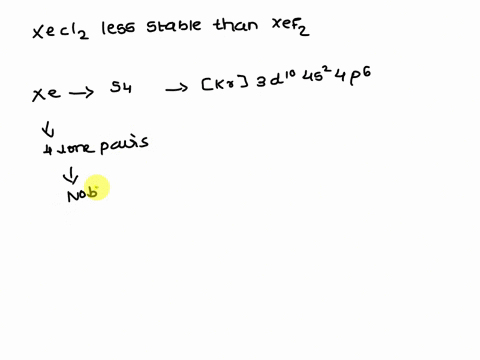 XeCl₂ less stable than XeF₂
Xe → 54 → [Kr] 3d¹⁰ 4s² 4p⁶
↓
4 lone pairs
↓
Nob